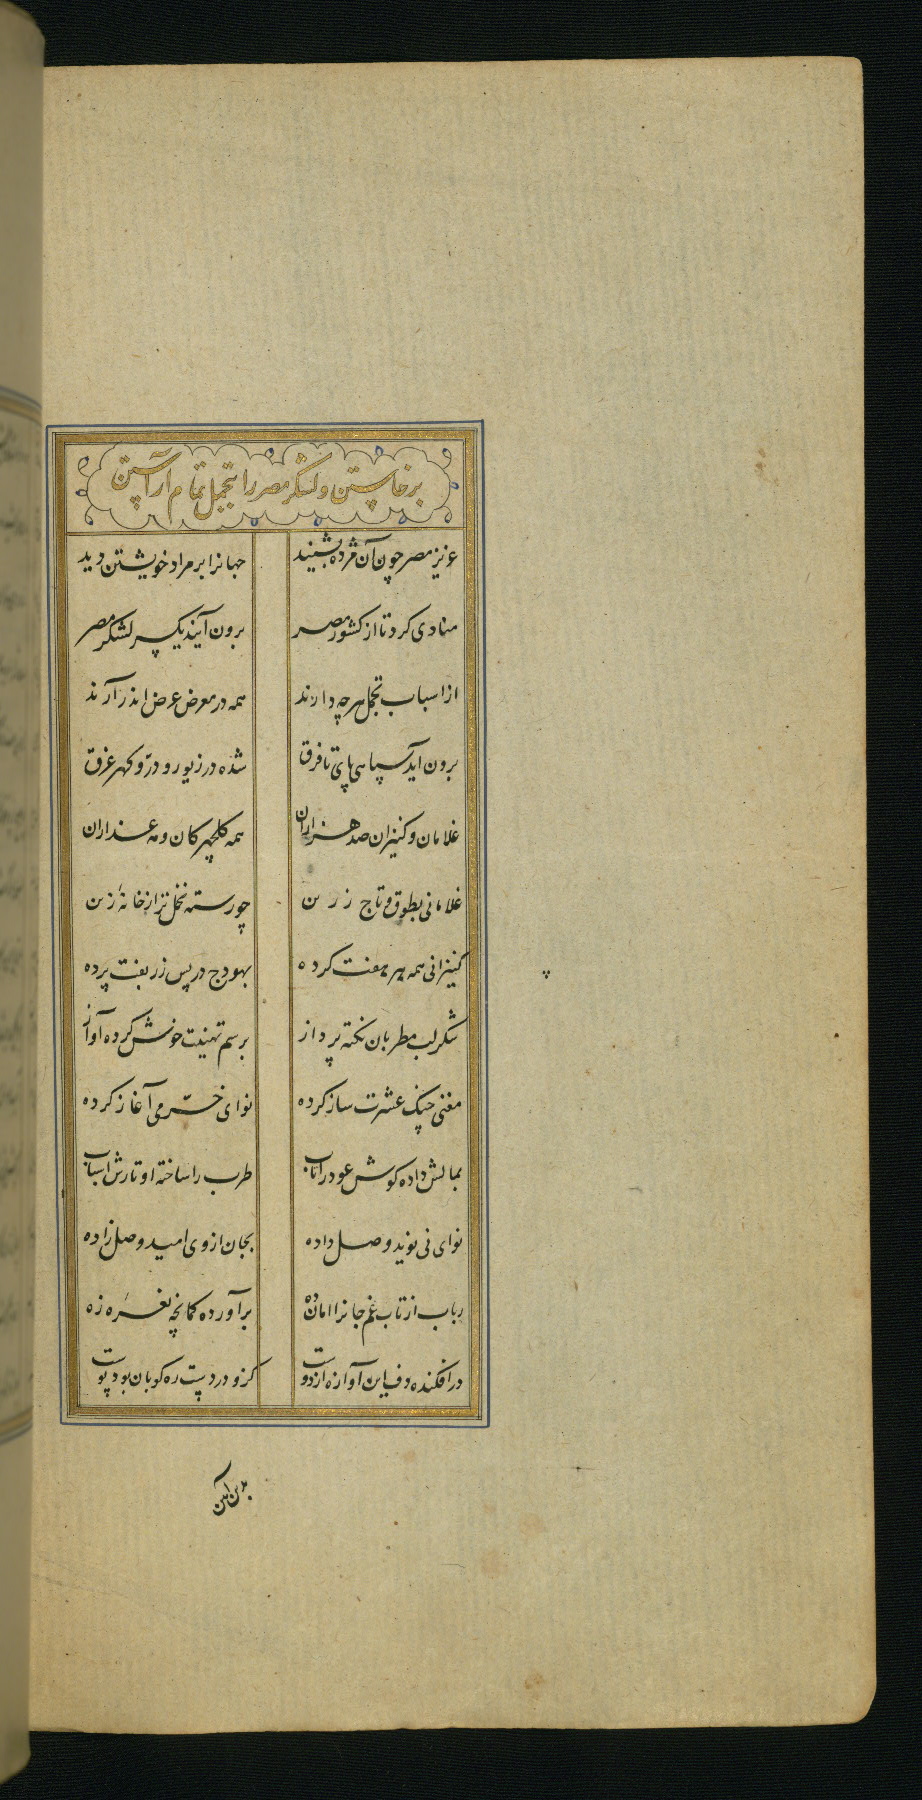 برخاستن و لشکر مصر را بتجمل تمام آراستن
عزیز مصر چون آن مژده بشنید جهانرا بر مراد خویشتن دید
منادی کرد تا از کشور مصر برون آیند یکسر لشکر مصر
از اسباب تجمل هرچه دارند همه در معرض عرض اندر آرند
برون آید سپاهی پای تا فرق شده در زیور و در و کهر غرق
غلامان و کنیزان صد هزاران همه کلچهرکان و مه عذاران
غلامانی بطوق و تاج زرین چو رسته نخل تر از خانهٔ زین
کنیزانی همه هر هفت کرده بهودج در پس زربفت پرده
شکرلب مطربان نکته پرداز برسم تهنیت خوش کرده آواز
مغنی چنک عشرت ساز کرده نوای خرّمی آغاز کرده
بمالش داده کوش عود را تاب طرب را ساخته او تارش اسباب
نوای نی نوید وصل داده بجان از وی امید وصل زاده
رباب از تاب غم جانرا امان ده برآورده کمانچه نغمهٔ زه
درافکنده دف این آوازه از دوست کزو در دست ره کوبان بود پوست
بدین آیین